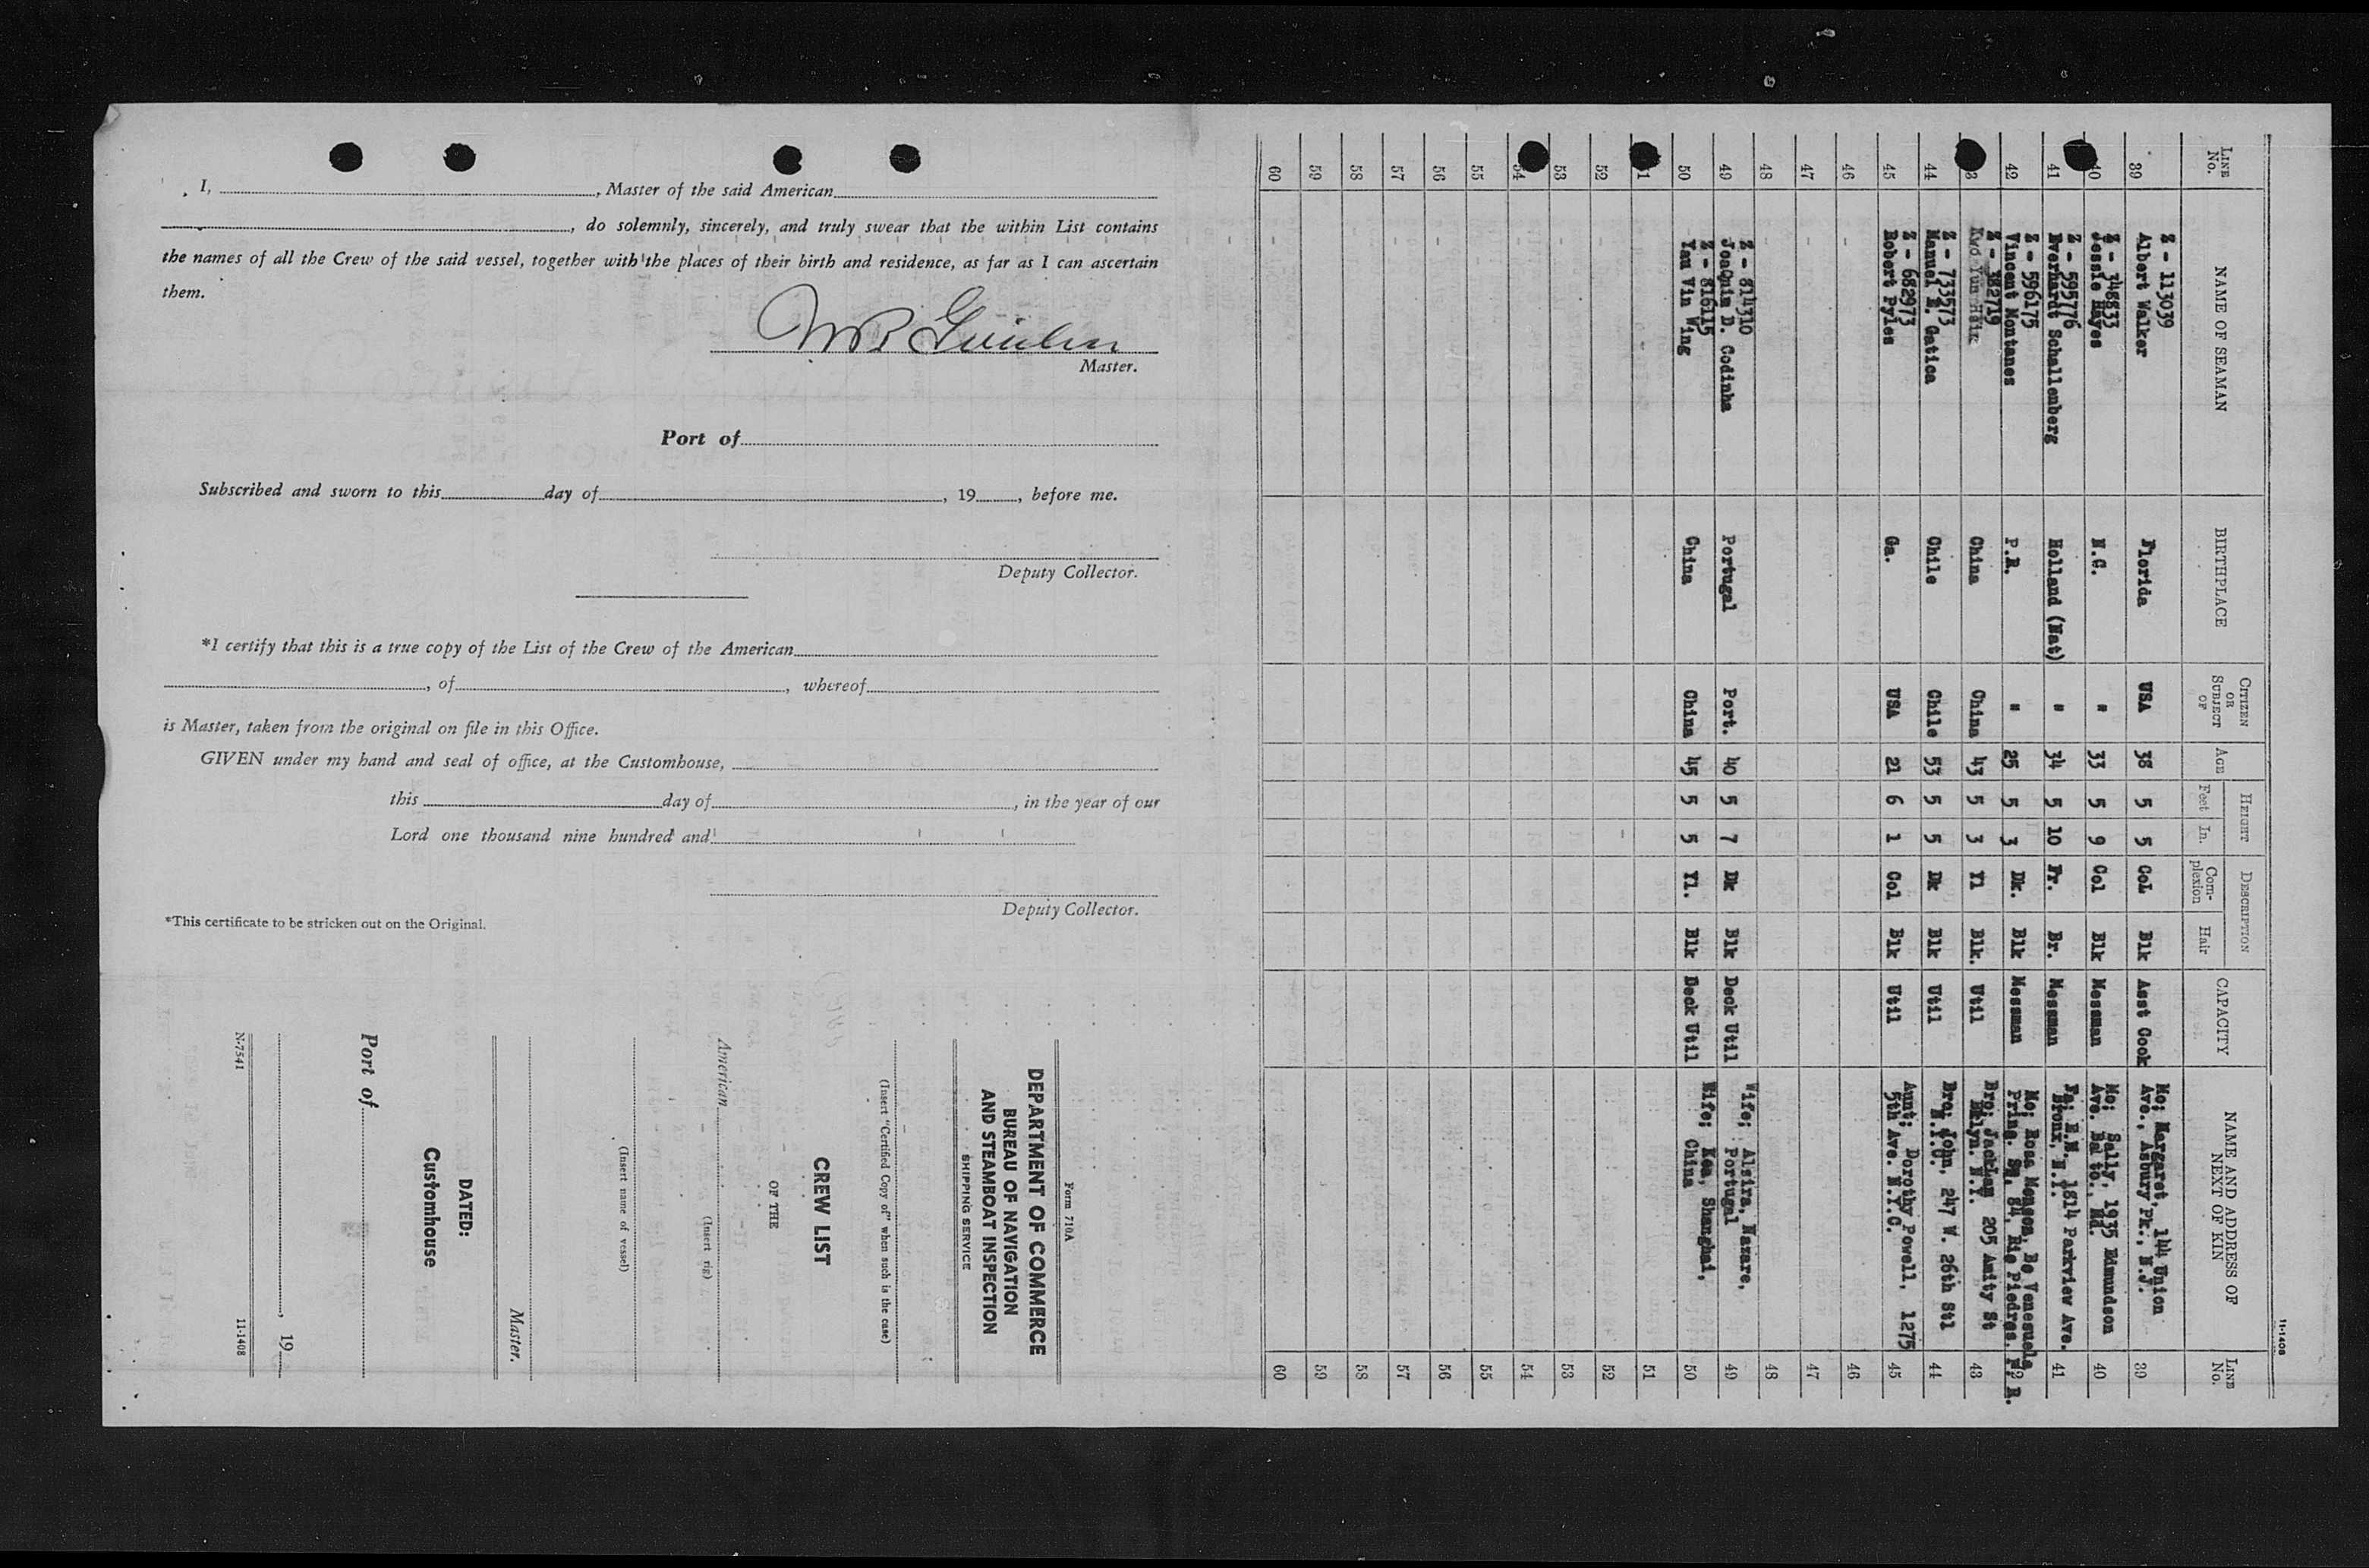 I, , Master of the said American
, do solemnly, sincerely, and truly swear that the within List contains
the names of all the Crew of the said vessel, together with the places of their birth and residence, as far as I can ascertain
them.
Master.
Port of
Subscribed and sworn to this day of , 19 , before me.
Deputy Collector.
*I certify that this is a true copy of the List of the Crew of the American
, of , whereof
is Master, taken from the original on file in this Office.
GIVEN under my hand and seal of office, at the Customhouse,
this day of , in the year of our
Lord one thousand nine hundred and
Deputy Collector.
*This certificate to be stricken out on the Original.
Form 710A
DEPARTMENT OF COMMERCE
BUREAU OF NAVIGATION
AND STEAMBOAT INSPECTION
SHIPPING SERVICE
(Insert "Certified Copy of" when such is the case)
CREW LIST
OF THE
American
(Insert rig)
(Insert name of vessel)
Master.
DATED:
Customhouse
Port of
, 19
N-7541 11-1408
11-1408
LINE No. NAME OF SEAMAN BIRTHPLACE CITIZEN OR SUBJECT OF AGE HEIGHT Feet In. DESCRIPTION Complexion Hair CAPACITY NAME AND ADDRESS OF NEXT OF KIN LINE No.
Z - 113039 Mo; Margaret, 144 Union
39 Albert Walker Florida USA 38 5 5 Col Blk Asst Cook Ave., Asbury Pk., N.J. 39
Z - 348833 Mo; Sally, 1935 Edmundson
40 Jessie Hayes N.C. " 33 5 9 Col Blk Messman Ave. Balto., Md. 40
Z - 595776 Fa; E.W. 1814 Parkview Ave.
41 Everhardt Schallenberg Holland (Nat) " 34 5 10 Fr. Br. Messman Bronx, N.Y. 41
Z - 596175 Mo; Rosa Monson, Bo Venesuela
42 Vincent Montanes P.R. " 25 5 3 Dk. Blk Messman Pring. 84, Rio Piedras. P. R.
Z - 382719 Bro; Jackham 205 Amity St
43 China China 43 5 3 Yl Blk. Util Bklyn. N.Y. 43
Z - 733573 Bro; John, 247 W. 26th Stl
44 Manuel E. Gatica Chile Chile 53 5 5 Dk Blk Util N.Y.C. 44
Z - 682973 Aunt; Dorothy Powell, 1275
45 Robert Pyles Ga. USA 21 6 1 Col Blk Util 5th Ave. N.Y.C. 45
46 46
47 47
48 48
Z - 814310 Wife; Alzira, Nazare,
49 Joaquim D. Codinha Portugal Port. 40 5 7 Dk Blk Deck Util Portugal 49
Z - 816115 Wife; Kea, Shanghai,
50 Yau Vin Wing China China 45 5 5 Yl. Blk Deck Util China 50
51 51
52 52
53 53
54 54
55 55
56 56
57 57
58 58
59 59
60 60